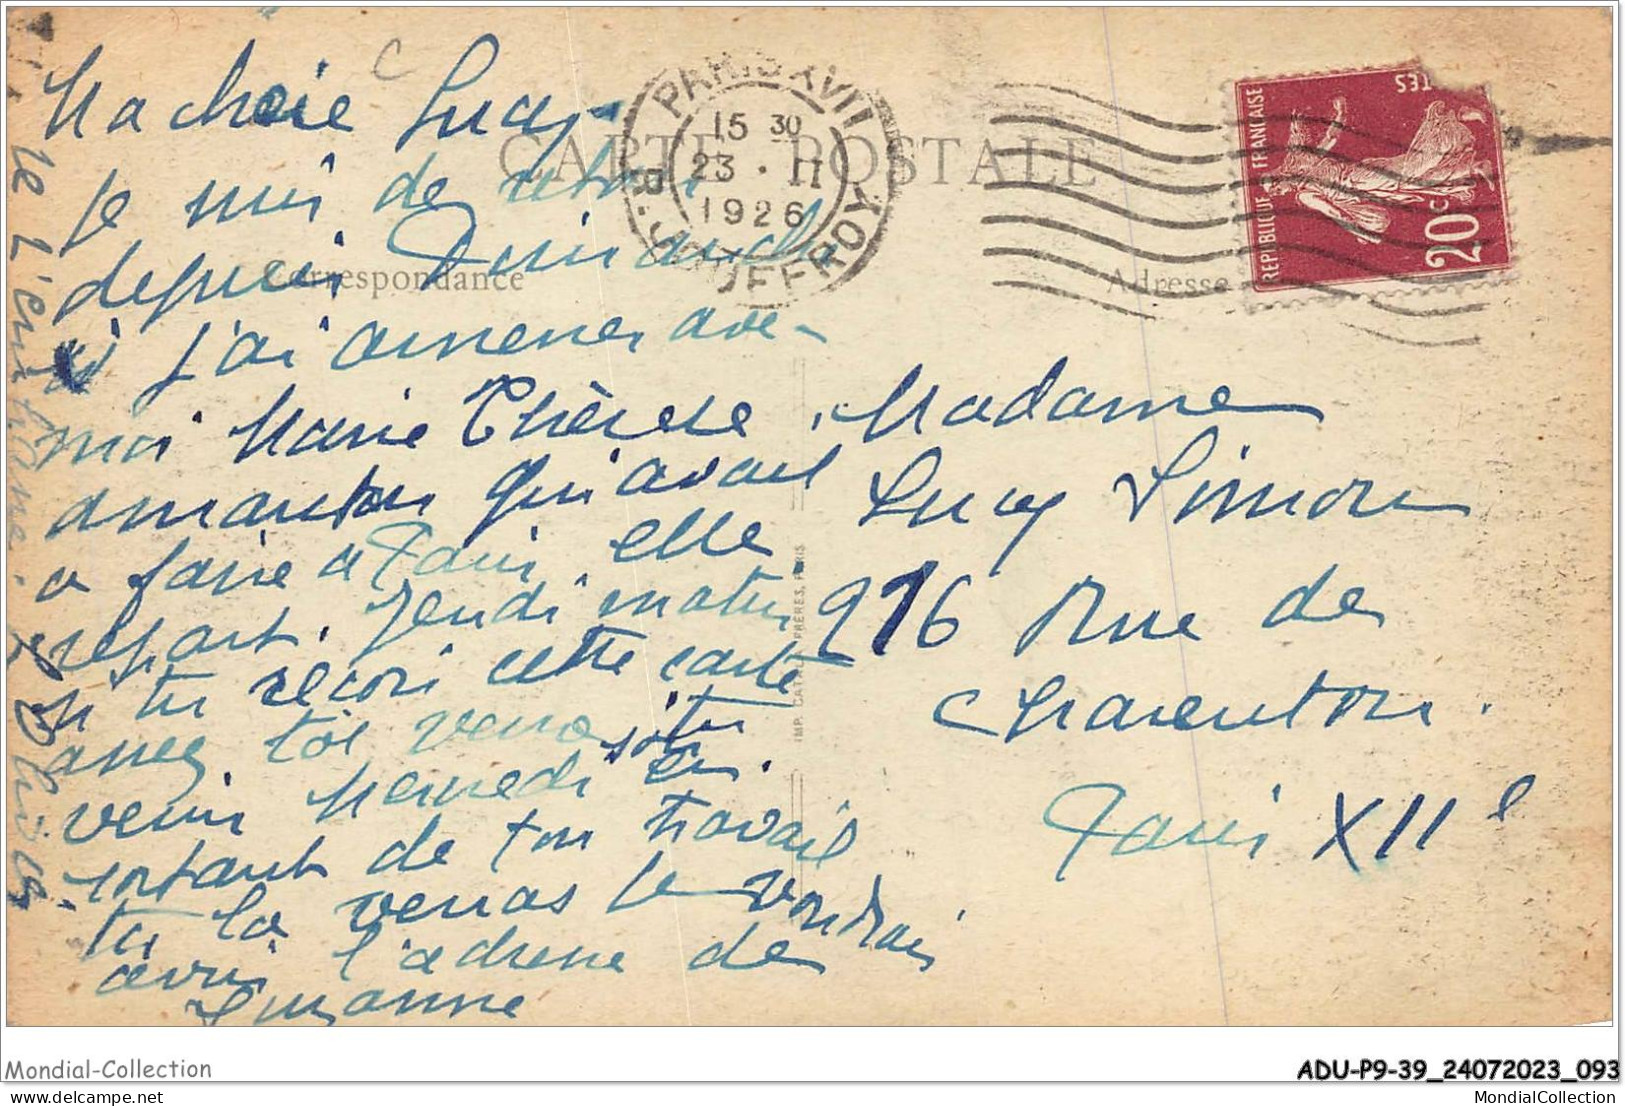 Ma chère Lucy
je suis de retour
depuis Dimanche
j'ai amener avec
moi Marie Thérèse
qui avait
a faire a Paris, elle
repart Jeudi matin
si tu recois cette carte
assez tôt si tu
venir Mercredi en
sortant de ton travail
tu la verras Je voudrais
avoir l'adresse de
Suzanne
CARTE POSTALE
Correspondance
Adresse
PARIS XVII
15 30
23 · II
1926
R. JOUFFROY
REPUBLIQUE FRANCAISE
20 C
Madame
Lucy Simon
276 Rue de
Charenton.
Paris XIIe
IMP. CATALA FRÈRES, PARIS
Mondial-Collection
ADU-P9-39_24072023_093
MondialCollection